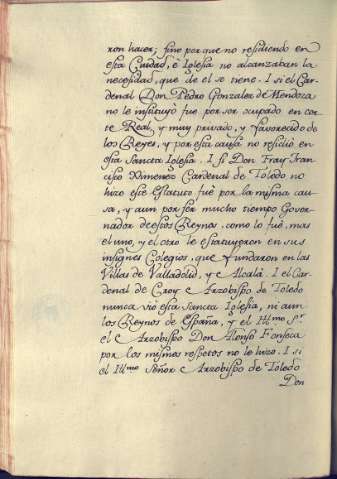 ron hacer; sino porque no residiendo en
esta Ciudad, è Iglesia no alcanzaban la
necesidad, que de el se tiene. I si el Car-
denal Don Pedro Gonzalez de Mendoza
no le instituyò fue por ser ocupado en cor-
te Real, y muy privado, y favorecido de
los Reyes, y por esta causa no residio en
esta Sancta Iglesia. I si Don Fray Fran-
cisco Ximenez Cardenal de Toledo no
hizo este Estatuto fuè por la misma cau-
sa, y aun por ser mucho tiempo Gover-
nador de estos Reynos, como lo fuè, mas
el uno, y el otro le estatuyeron en sus
insignes Colegios, que fundaron en las
Villas de Valladolid, y Alcalà. I el Car-
denal de Croy Arzobispo de Toledo
nunca viò esta Sancta Iglesia, ni aun
los Reynos de España, y el Ill.mo S.r
el Arzobispo Don Alonso Fonseca
por los mismos respetos no le hizo. I si
el Ill.mo Señor Arzobispo de Toledo
Don